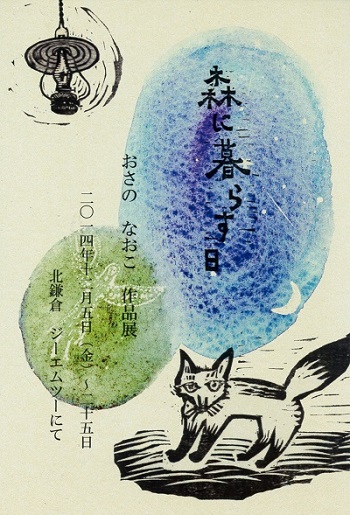 森に暮らす日
おさの なおこ 作品展
二〇一四年十二月五日（金）〜二十五日
北鎌倉 ジーエムツーにて